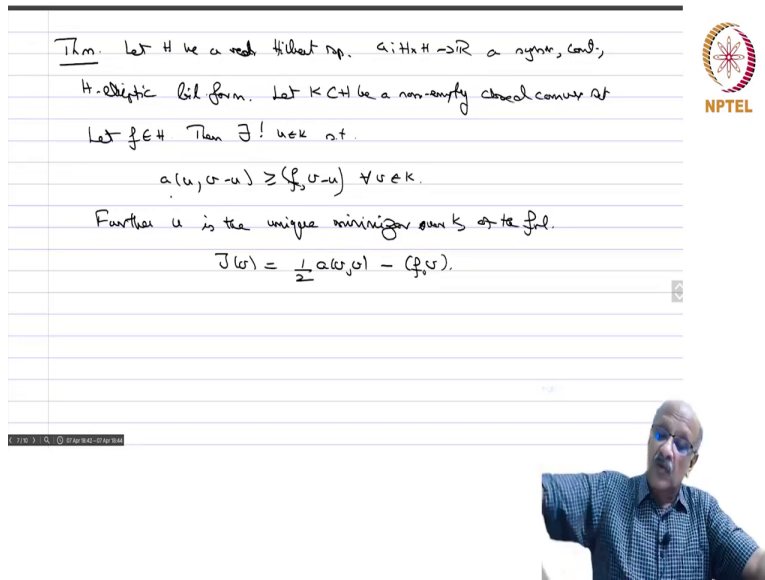 Thm. Let H be a real Hilbert sp. a: H×H→ℝ a symm, cont,
H-elliptic bil. form. Let K⊂H be a non-empty closed convex set
Let f∈H. Then ∃! u∈K s.t.
a(u, v-u) ≥ (f, v-u) ∀ v∈K.
Further u is the unique minimizer over K of the fnl.
J(v) = 1/2 a(v,v) - (f,v).
NPTEL
7/10
07 Apr 18:42 - 07 Apr 18:44